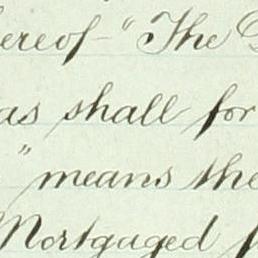 ereof - "The
as shall for
" means the
Mortgaged